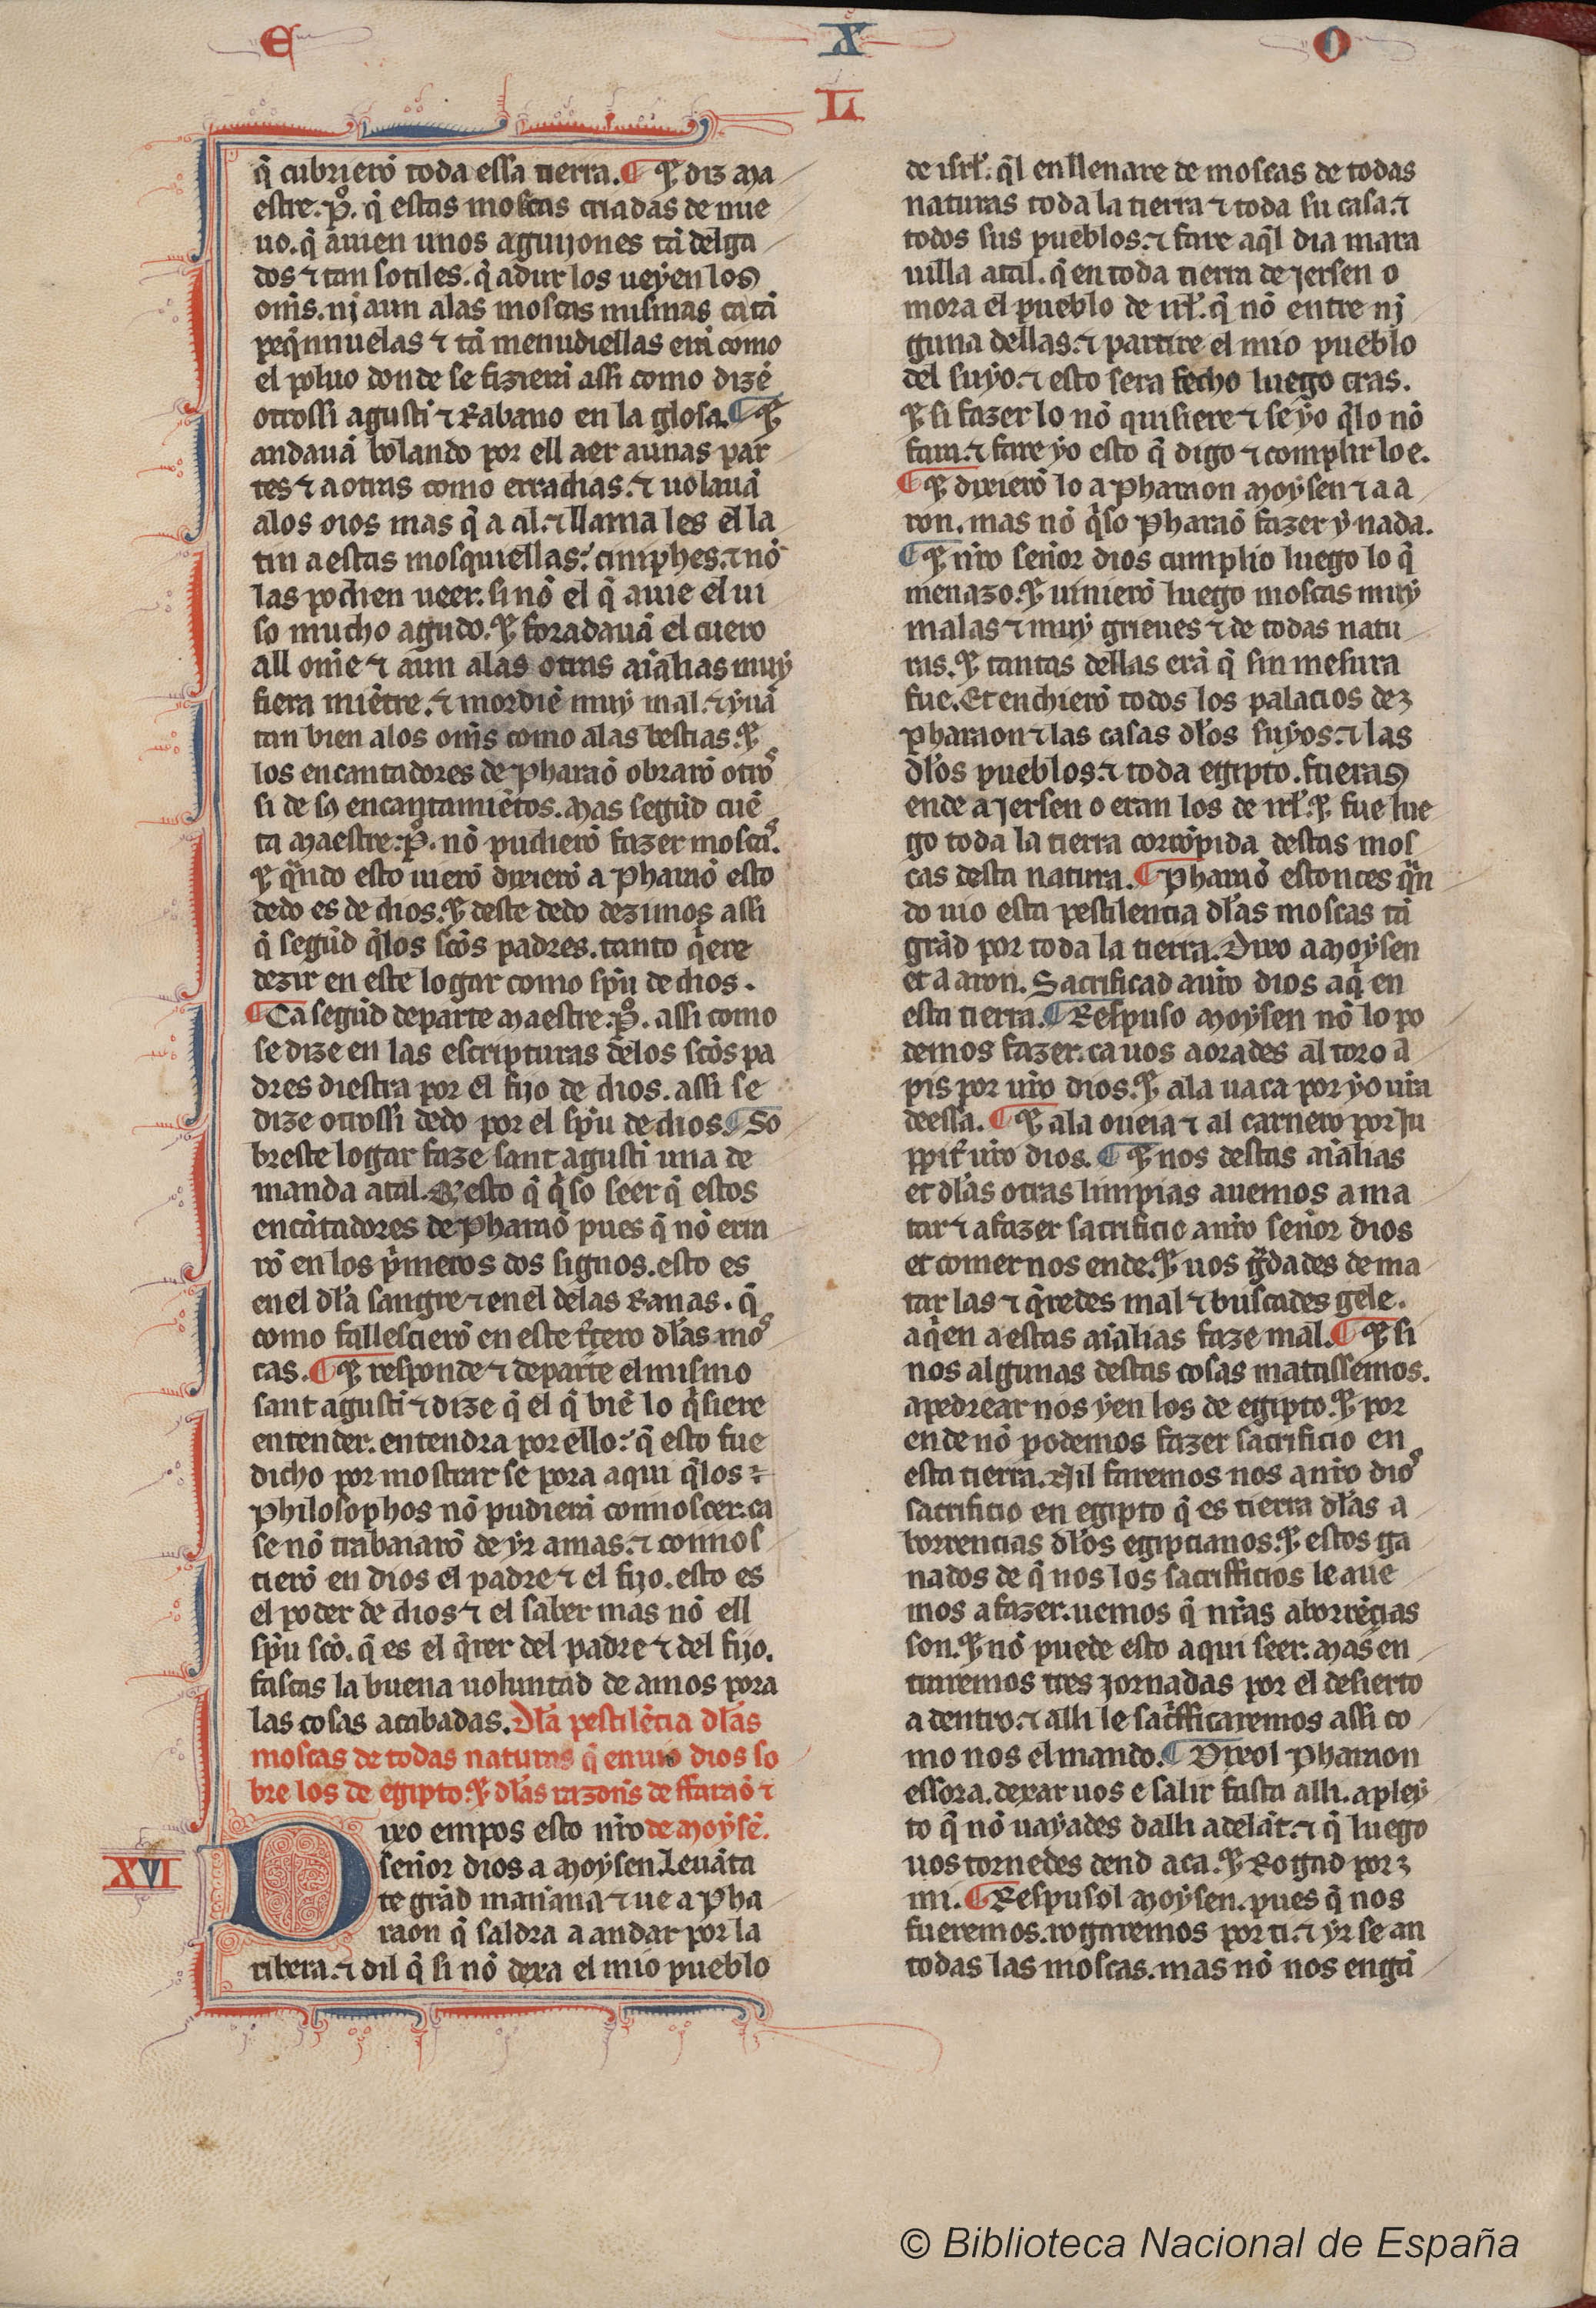 E X O
L
q̃ cubrierõ toda essa tierra. ¶ ⁊ diz Ma
estre. P̊. q̃ estas moscas criadas de nue
uo. q̃ auien unos aguijones tã delga
dos ⁊ tan sotiles. q̃ adur los ueyen los
om̃s. nj aun alas moscas mismas ca tã
peq̃nnuelas ⁊ tã menudiellas erã como
el poluo donde se fizierã assi como dizẽ
otrossi agustĩ ⁊ Rabano en la glosa. ¶ ⁊
andauã bolando por ell aer aunas par
tes ⁊ a otras como errachas. ⁊ uolauã
alos oios mas q̃ a al. ⁊ llama les el la
tin a estas mosquiellas: ciniphes. ⁊ nõ
las podien ueer. si nõ el q̃ auie el ui
so mucho agudo. ⁊ foradauã el cuero
all om̃e ⁊ aun alas otras aĩalias muy
fiera miẽtre. ⁊ mordiẽ muy mal. ⁊ yuã
tan bien alos om̃s como alas bestias. ⁊
los encantadores de Pharaõ obrarõ otros
si de sus encantamiẽtos. Mas segũd cuẽ
ta Maestre. P̊. nõ pudierõ fazer moscas.
⁊ q̃ndo esto uierõ dixierõ a Pharaõ esto
dedo es de dios. ⁊ deste dedo dezimos assi
q̃ segũd q̃los sc̃os padres. tanto q̃ere
dezir en este logar como sp̃u de dios.
¶ Ca segũd departe Maestre. P̊. assi como
se dize en las escripturas delos sc̃os pa
dres diestra por el fijo de dios. assi se
dize otrossi dedo por el sp̃u de dios. ¶ So
breste logar faze sant agustĩ una de
manda atal. Q̃ esto q̃ q̃so seer q̃ estos
encãtadores de Pharaõ pues q̃ nõ erra
rõ en los p̃meros dos signos. esto es
en el dl̃a sangre ⁊ en el delas Ranas. q̃
como fallescierõ en este t̃cero dl̃as mos
cas. ¶ ⁊ responde ⁊ departe el mismo
sant agustĩ ⁊ dize q̃ el q̃ biẽ lo q̃siere
entender. entendra por ello: q̃ esto fue
dicho por mostrar se pora aqui q̃los
philosophos nõ pudierã connoscer. ca
se nõ trabaiarõ de yr a mas. ⁊ connos
cierõ en dios el padre ⁊ el fijo. esto es
el poder de dios ⁊ el saber mas nõ ell
sp̃u sc̃o. q̃ es el q̃rer del padre ⁊ del fijo.
fascas la buena uoluntad de amos pora
las cosas acabadas. Dl̃a pestilẽcia dl̃as
moscas de todas naturas q̃ enuio dios so
bre los de egipto. ⁊ dl̃as razon̄s de ffaraõ ⁊
ixo empos esto nr̃o de Moysẽ.
XVI D señor dios a Moysen. Leuãta
te grãd mañana ⁊ ue a Pha
raon q̃ saldra a andar por la
ribera. ⁊ dil q̃ si nõ dexa el mio pueblo
de isrł. q̃l enllenare de moscas de todas
naturas toda la tierra ⁊ toda su casa. ⁊
todos sus pueblos. ⁊ fare aq̃l dia mara
uilla atal. q̃ en toda tierra de Jersen o
mora el pueblo de irł. q̃ nõ entre nj
guna dellas. ⁊ partire el mio pueblo
del suyo. ⁊ esto sera fecho luego cras.
⁊ si fazer lo nõ quisiere ⁊ se yo q̃lo nõ
fara. ⁊ fare yo esto q̃ digo ⁊ complir lo e.
¶ ⁊ dixierõ lo a Pharaon Moysen ⁊ a a
ron. mas nõ q̃so Pharaõ fazer y nada.
¶ ⁊ nr̃o señor dios cumplio luego lo q̃
menazo. ⁊ uinierõ luego moscas muy
malas ⁊ muy grieues ⁊ de todas natu
ras. ⁊ tantas dellas erã q̃ sin mesura
fue. Et enchierõ todos los palacios de
pharaon ⁊ las casas dl̃os suyos. ⁊ las
dl̃os pueblos. ⁊ toda egipto. fueras
ende a Jersen o eran los de irł. ⁊ fue lue
go toda la tierra corrõpida destas mos
cas desta natura. ¶ Pharaõ estonces q̃n
do uio esta pestilencia dl̃as moscas tã
grãd por toda la tierra. Dixo a Moysen
et a aron. Sacrificad a ur̃o dios aq̃ en
esta tierra. ¶ Respuso Moysen nõ lo po
demos fazer. ca uos aorades al toro a
pis por ur̃o dios. ⁊ ala uaca por yo ur̃a
deessa. ¶ ⁊ ala oueia ⁊ al carnero por Ju
ppit̃ ur̃o dios. ¶ ⁊ nos destas aĩalias
et dl̃as otras limpias auemos a ma
tar ⁊ a fazer sacrificio a nr̃o señor dios
et comer nos ende. ⁊ uos g̃rdades de ma
tar las ⁊ q̃redes mal ⁊ buscades gele.
aq̃en a estas aĩalias faze mal. ¶ ⁊ si
nos algunas destas cosas matassemos.
apedrear nos yen los de egipto. ⁊ por
ende nõ podemos fazer sacrificio en
esta tierra. Nil faremos nos a nr̃o dios
sacrificio en egipto q̃ es tierra dl̃as a
borrencias dl̃os egipcianos. ⁊ estos ga
nados de q̃ nos los sacrifficios le aue
mos a fazer. uemos q̃ nr̃as aborrẽcias
son. ⁊ nõ puede esto aqui seer. Mas en
traremos tres jornadas por el desierto
a dentro. ⁊ alli le sac̃fficaremos assi co
mo nos el mando. ¶ Dixol Pharaon
essora. dexar uos e salir fasta alli. a pley
to q̃ nõ uayades dalli adelãt. ⁊ q̃ luego
uos tornedes dend aca. ⁊ Rogad por
mi. ¶ Respusol Moysen. pues q̃ nos
fueremos. rogaremos por ti. ⁊ yr se an
todas las moscas. mas nõ nos engã
© Biblioteca Nacional de España